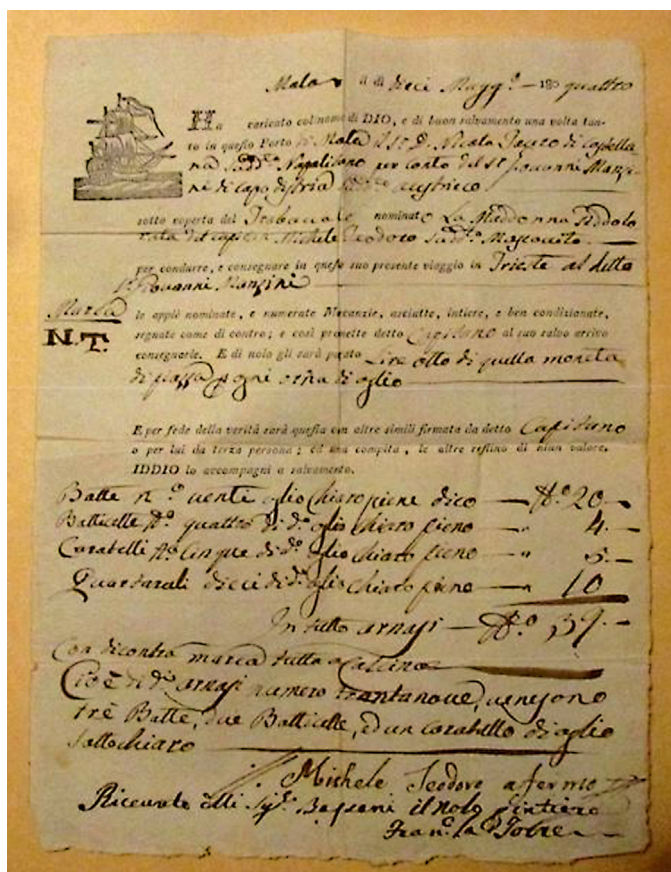 Mola a di dieci Magg.º 180 quattro
Ha caricato col nome di DIO, e di buon salvamento una volta tan-
to in questo Porto di Mola il Sr. D. Nicola di Castella
na Sudd.º Napolitano per conto del Sr. Giovanni Manzi
ni di Capo distria Austriaco
sotto coperta del Trabaccolo nominato La Maddonna Addolo
rata del capitan Michele Teodoro Sudd.º
per condurre, e consegnare in questo suo presente viaggio in Trieste al detto
Sr. Giovanni Manzini
Marca
N.T.
le appiè nominate, e numerate Mecanzie, asciutte, intiere, e ben condizionate,
segnate come di contro; e così promette detto Capitano al suo salvo arrivo
consegnarle. E di nolo gli sarà pagato Lire otto di quella moneta
di piazza ogni orna di oglio
E per fede della verità sarà questa con altre simili firmata da detto Capitano
o per lui da terza persona; ed una compita, le altre restino di niun valore.
IDDIO lo accompagni a salvamento.
Batte n.º venti oglio chiaro piene dico — N.º 20 —
Batticelle N.º quattro di d.º oglio chiaro pieno — " 4. —
Carabelli N.º Cinque di d.º oglio chiaro pieno — " 5. —
Quartarali dieci di d.º oglio chiaro pieno — " 10
In tutto arnasi — N.º 39. —
Con dicontro marca tutta a
Cioè di d.i arnasi numero trantanove, venesono
trè Batte, due Batticelle, ed un carabello di oglio
sottochiaro
Michele Teodoro afermo
Ricevute dalli Sig.i il nolo intiero
Fran.º la